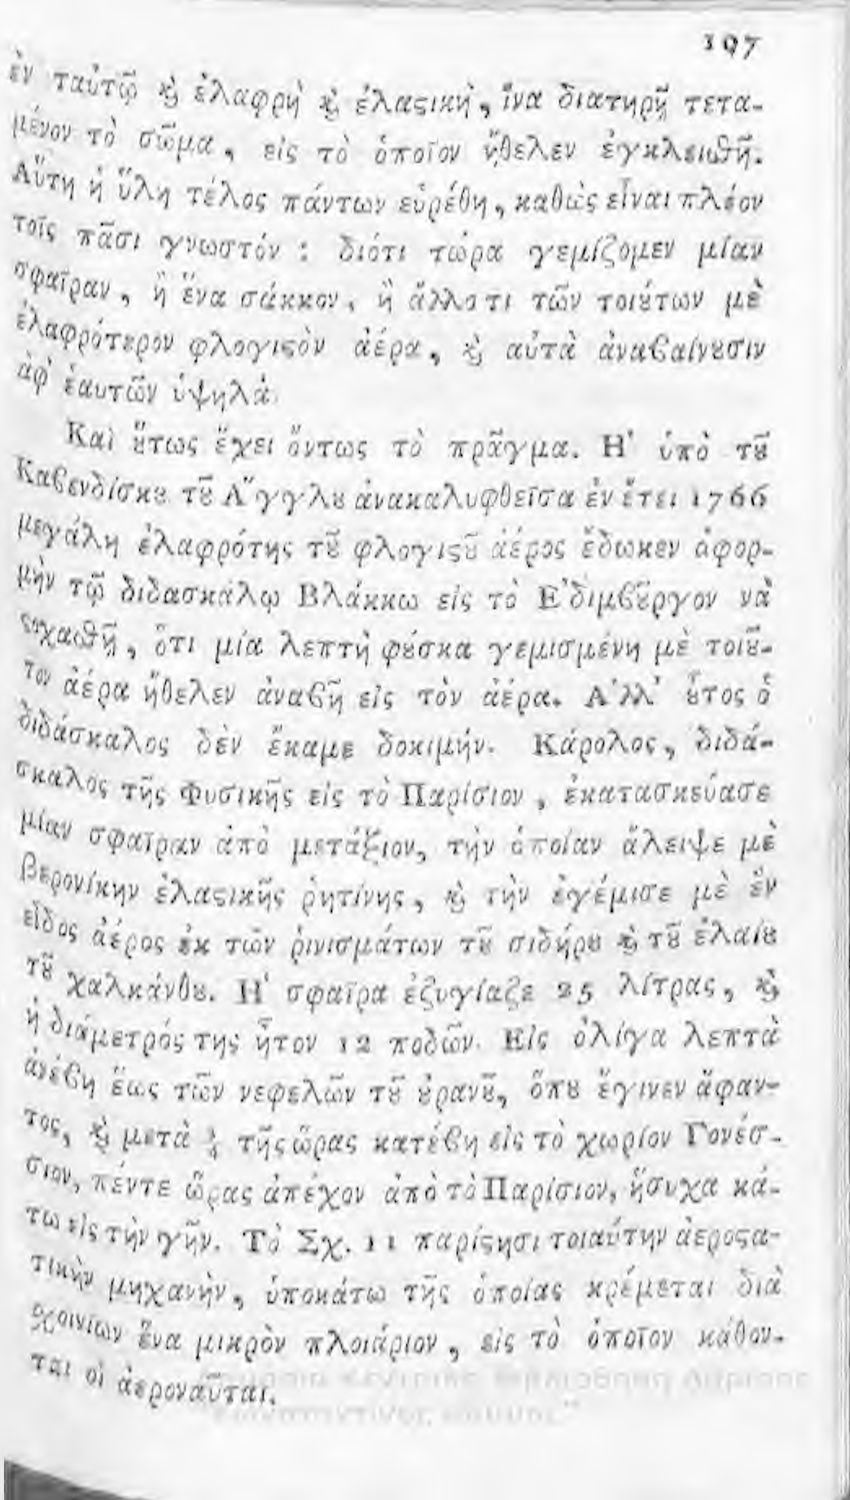 197
ἐν ταὐτῷ ϗ̀ ἐλαφρὴ ϗ̀ ἐλαϛικὴ, ἵνα διατηρῇ τετα-
μένον τὸ σῶμα, εἰς τὸ ὁποῖον ἤθελεν ἐγκλεισθῆ.
Αὕτη ἡ ὕλη τέλος πάντων εὑρέθη, καθὼς εἶναι πλέον
τοῖς πᾶσι γνωστόν : διότι τώρα γεμίζομεν μίαν
σφαῖραν, ἢ ἕνα σάκκον, ἢ ἄλλο τι τῶν τοιȣ́των μὲ
ἐλαφρότερον φλογιϛὸν ἀέρα, ϗ̀ αὐτὰ ἀναβαίνȣσιν
ἀφ' ἑαυτῶν ὑψηλά.
Καὶ ȣ̔́τως ἔχει ὄντως τὸ πρᾶγμα. Η' ὑπὸ τȣ͂
Καβενδίσκȣ τȣ͂ Α"γγλȣ ἀνακαλυφθεῖσα ἐν ἔτει 1766
μεγάλη ἐλαφρότης τȣ͂ φλογιϛȣ͂ ἀέρος ἔδωκεν ἀφορ-
μὴν τῷ διδασκάλῳ Βλάκκω εἰς τὸ Ε'διμβȣ͂ργον νὰ
ϛοχασθῇ, ὅτι μία λεπτὴ φȣ́σκα γεμισμένη μὲ τοιȣ͂-
τον ἀέρα ἤθελεν ἀναβῆ εἰς τὸν ἀέρα. Α'λλ' ȣ̔͂τος ὁ
διδάσκαλος δὲν ἔκαμε δοκιμήν. Κάρολος, διδά-
σκαλος τῆς Φυσικῆς εἰς τὸ Παρίσιον, ἐκατασκεύασε
μίαν σφαῖραν ἀπὸ μετάξιον, τὴν ὁποίαν ἄλειψε μὲ
βερονίκην ἐλαϛικῆς ῥητίνης, ϗ̀ τὴν ἐγέμισε μὲ ἓν
εἶδος ἀέρος ἐκ τῶν ῥινισμάτων τȣ͂ σιδήρȣ ϗ̀ τȣ͂ ἐλαίȣ
τȣ͂ χαλκάνθȣ. Η' σφαῖρα ἐζυγίαζε 25 λίτρας, ϗ̀
ἡ διάμετρός της ἦτον 12 ποδῶν. Εἰς ὀλίγα λεπτὰ
ἀνέβη ἕως τῶν νεφελῶν τȣ͂ ȣ̓ρανȣ͂, ὅπȣ ἔγινεν ἄφαν-
τος, ϗ̀ μετὰ ¾ τῆς ὥρας κατέβη εἰς τὸ χωρίον Γονέσ-
σιον, πέντε ὥρας ἀπέχον ἀπὸ τὸ Παρίσιον, ἥσυχα κά-
τω εἰς τὴν γῆν. Τὸ Σχ. 11 παρίϛησι τοιαύτην ἀεροϛα-
τικὴν μηχανὴν, ὑποκάτω τῆς ὁποίας κρέμεται διὰ
σχοινίων ἕνα μικρὸν πλοιάριον, εἰς τὸ ὁποῖον κάθον-
ται οἱ ἀεροναῦται.